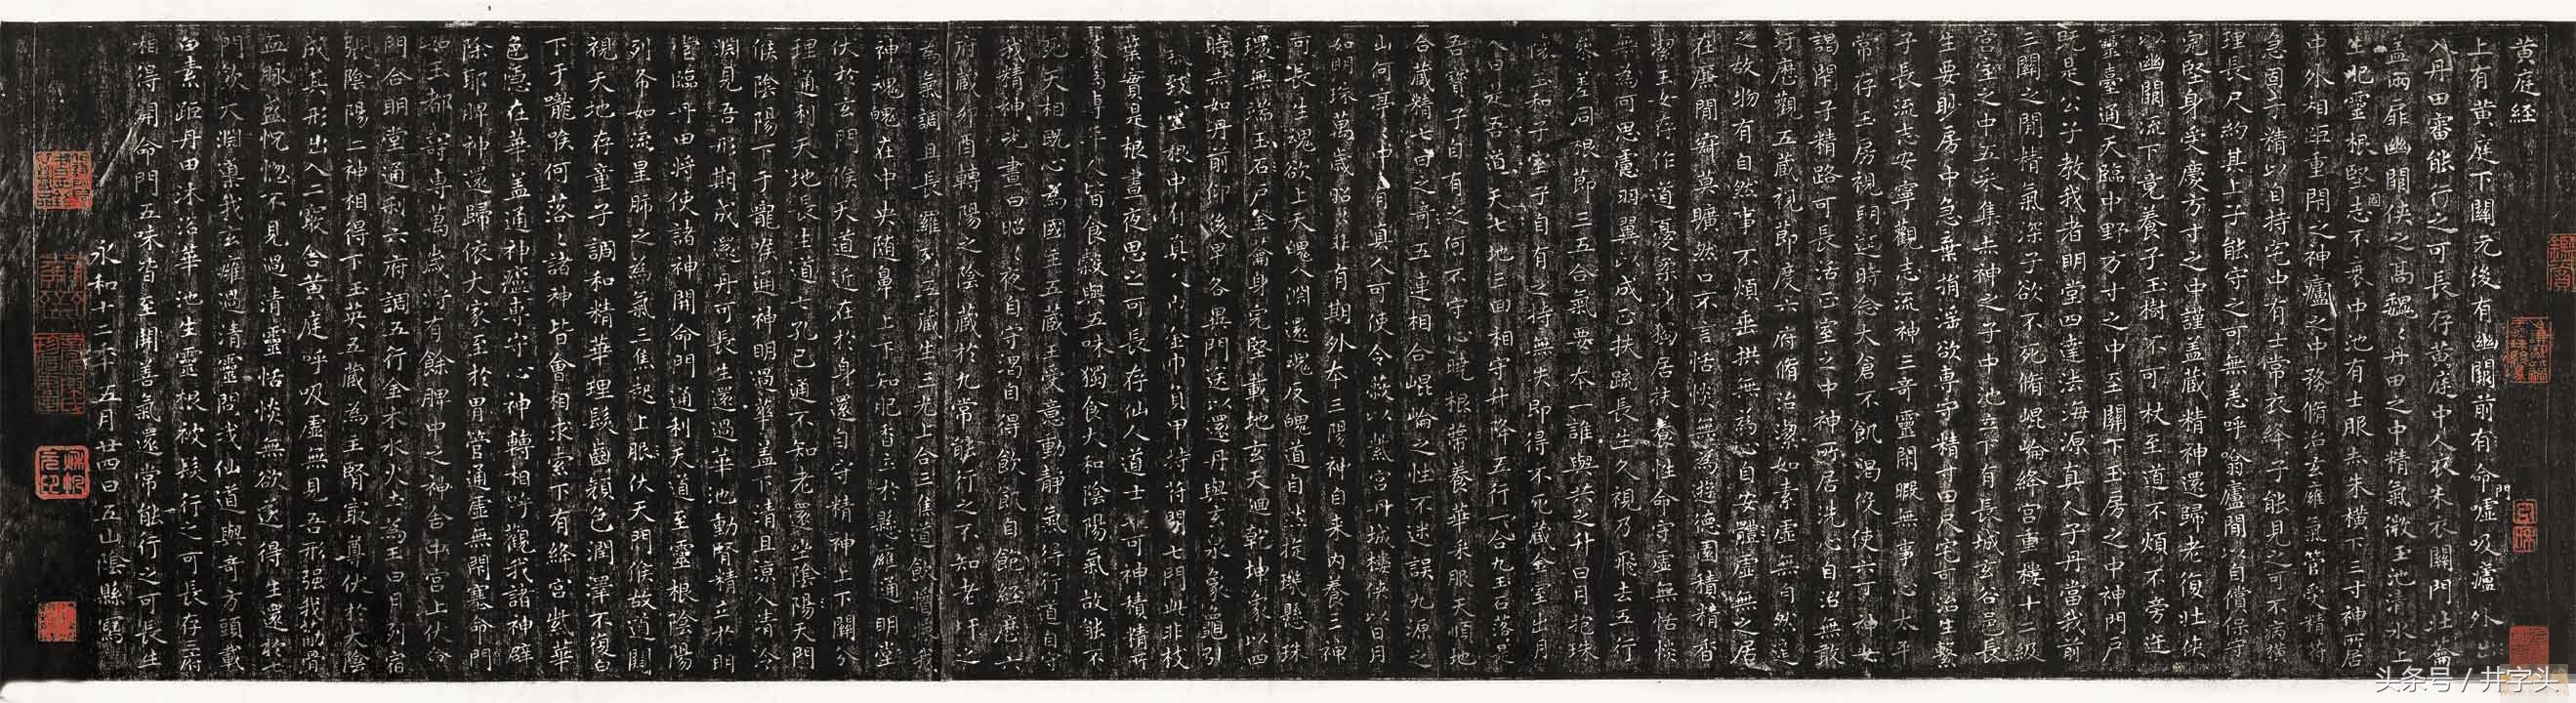 黄庭経
上有黄庭下關元後有幽關前有命門嘘吸廬外出
入丹田審能行之可長存黄庭中人衣朱衣關門壮籥
盖兩扉幽關侠之高魏〻丹田之中精氣微玉池清水上
生肥靈根堅固志不衰中池有士服赤朱横下三寸神所居
中外相距重閇之神廬之中務脩治玄廱氣管受精符
急固子精以自持宅中有士常衣絳子能見之可不病横
理長尺約其上子能守之可無恙呼噏廬間以自償保守
完堅身受慶方寸之中謹盖藏精神還歸老復壮侠
以幽關流下竟養子玉樹不可杖至道不煩不旁迕
靈臺通天臨中野方寸之中至關下玉房之中神門戶
既是公子教我者明堂四達法海源真人子丹當我前
三關之間精氣深子欲不死脩崐崘絳宫重樓十二級
宫室之中五采集赤神之子中池立下有長城玄谷邑長
生要眇房中急棄捐淫欲専守精寸田尺宅可治生繫
子長流志安寧觀志流神三奇靈閑暇無事心太平
常存玉房視明達時念大倉不飢渴役使六丁神女
謁閇子精路可長活正室之中神所居洗心自治無敢
汙歴觀五藏視節度六府脩治潔如素虚無自然道
之故物有自然事不煩垂拱無為心自安體虚無之居
在廉間寂莫曠然口不言恬惔無為遊徳園積精香
潔玉女存作道憂柔身獨居扶養性命守虚無恬惔
無為何思慮羽翼以成正扶疏長生久視乃飛去五行
參差同根節三五合氣要本一誰與共之升日月抱珠
懷玉和子室子自有之持無失即得不死藏金室出月
入日是吾道天七地三回相守升降五行一合九玉石落是
吾寶子自有之何不守心曉根蒂養華采服天順地
合藏精七日之奇五連相合崐崘之性不迷誤九源之
山何亭〻中有真人可使令蔽以紫宫丹城樓侠以日月
如明珠萬歳昭〻非有期外本三陽神自来内養三神
可長生魂欲上天魄入淵還魂反魄道自然旋璣懸珠
環無端玉石戶金籥身完堅載地玄天迴乾坤象以四
時赤如丹前仰後卑各異門送以還丹與玄泉象龜引
氣致靈根中有真人巾金巾負甲持符開七門此非枝
葉實是根晝夜思之可長存仙人道士非可神積精所
致為専年人皆食榖與五味獨食大和陰陽氣故能不
死天相既心為國主五藏王受意動静氣得行道自守
我精神光晝日昭〻夜自守渴自得飲飢自飽経歴六
府藏夘酉轉陽之陰藏於九常能行之不知老肝之
為氣調且長羅列五藏生三光上合三焦道飲漿我
神魂魄在中央随鼻上下知肥香立於懸廱通明堂
伏於玄門候天道近在於身還自守精神上下關分
理通利天地長生道七孔已通不知老還坐陰陽天門
候陰陽下于嚨喉通神明過華盖下清且涼入清冷
淵見吾形期成還丹可長生還過華池動腎精立於明
堂臨丹田將使諸神開命門通利天道至靈根陰陽
列布如流星肺之為氣三焦起上服伏天門候故道闚
視天地存童子調和精華理髮齒顔色潤澤不復白
下于嚨喉何落〻諸神皆會相求索下有絳宫紫華
色隱在華盖通神廬専守心神轉相呼觀我諸神辟
除耶脾神還歸依大家至於胃管通虚無閇塞命門
如玉都壽専萬歳将有餘脾中之神舍中宫上伏命
門合明堂通利六府調五行金木水火土為王日月列宿
張陰陽二神相得下玉英五藏為主腎最尊伏於大陰
成其形出入二竅舍黄庭呼吸虚無見吾形强我筋骨
血脉盛恍惚不見過清靈恬惔無欲遂得生還於七
門飲大淵導我玄廱過清靈問我仙道與奇方頭載
白素距丹田沐浴華池生靈根被髮行之可長存二府
相得開命門五味皆至開善氣還常能行之可長生
永和十二年五月廿四日五山陰縣寫
头条号 / 井字头